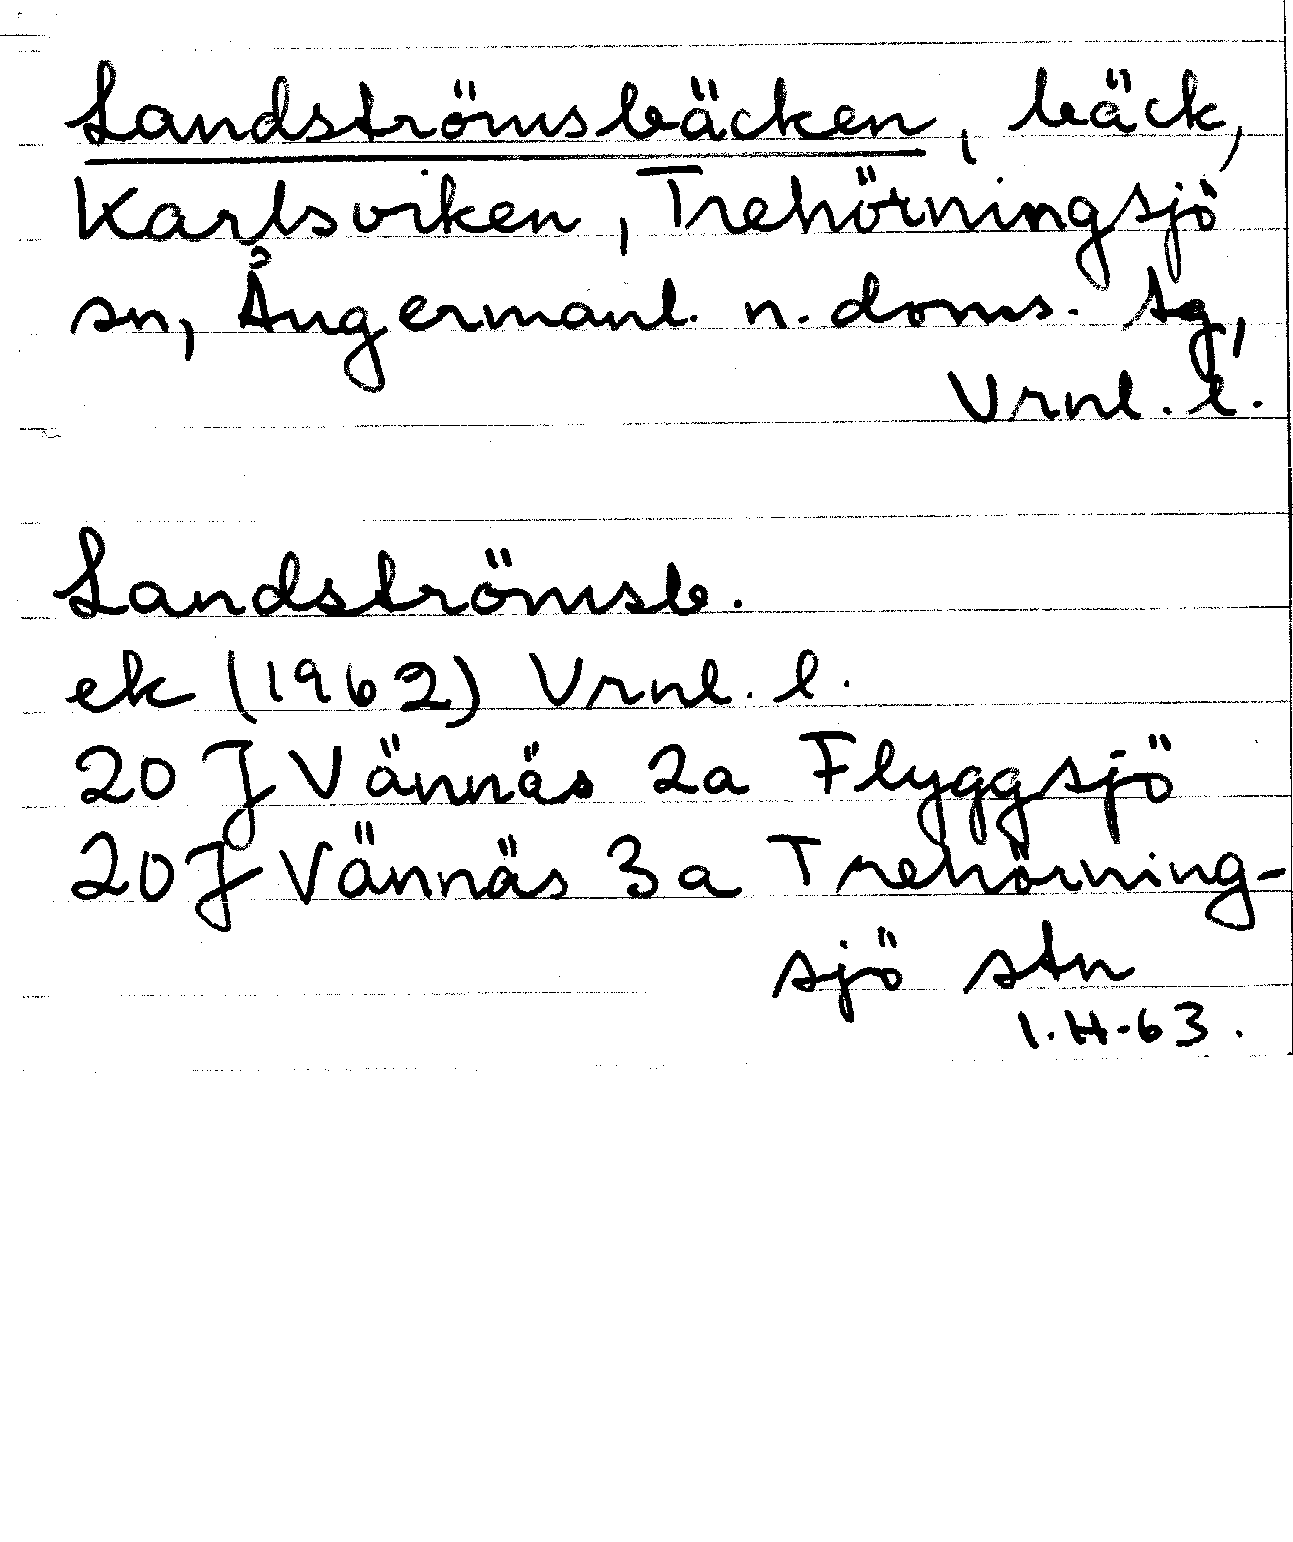 Landströmsbäcken, bäck,
Karlsviken, Trehörningsjö
sn, Ångermanl. n. doms. tg,
Vrnl. l.
Landströmsb.
ek (1962) Vrnl. l.
20 J Vännäs 2a Flyggsjö
20 J Vännäs 3a Trehörning-
sjö stn
I.H-63.